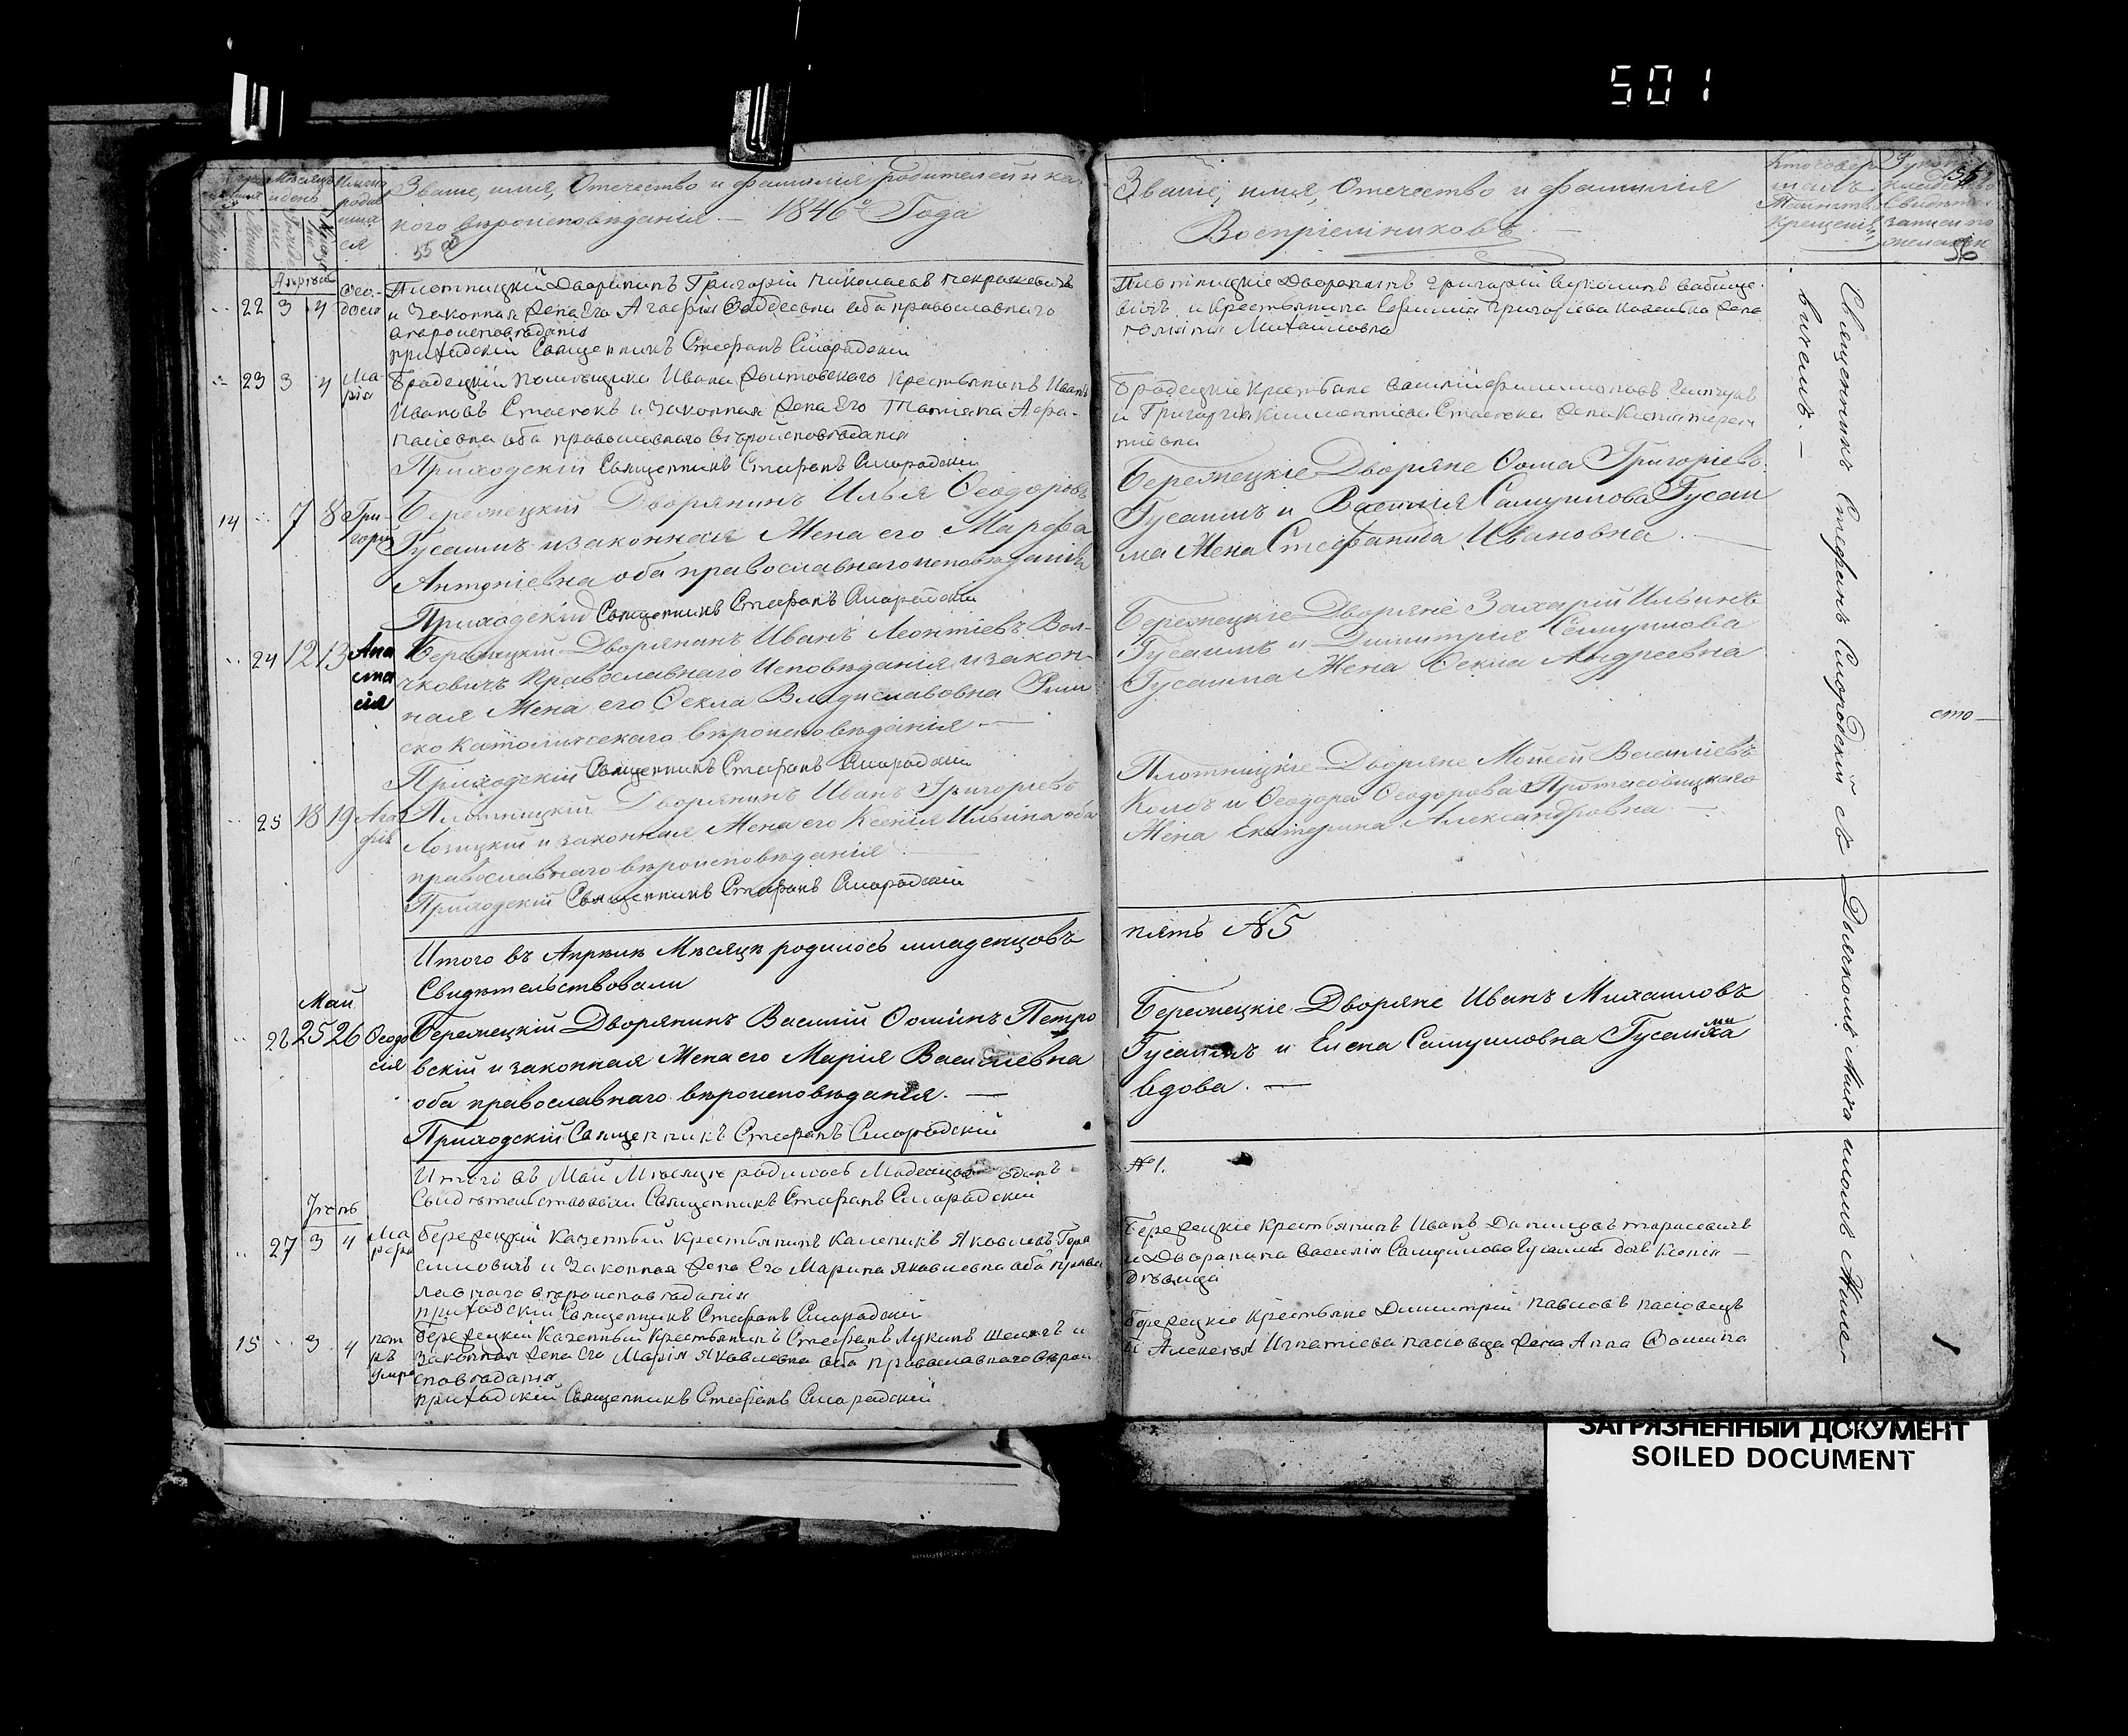 501
Мѣсяцъ и день
Званіе, имя, Отечество и фамилія родителей и ка-
кого вѣроисповѣданія. — 1846го Года
55
Апрѣль
22 3 4 Ѳео-
досія
Плотницкій Дворянинъ Григорій Николаевъ
и Законная Жена Его Агафія Фаддеевна оба православнаго
вѣроисповѣданія
приходскій Священникъ Стефанъ Смородскій
23 3 4 Ма-
рія
Бродецкій помѣщика Ивана крестьянинъ Иванъ
Ивановъ и Законная Жена Его Татіяна Афа-
насіевна оба православнаго вѣроисповѣданія
Приходскій Священникъ Стефанъ Смородскій
14 7 8 Гри-
горій
Бережецкій Дворянинъ Илья Ѳеодоровъ
Гусаимъ и законная Жена его Марфа
Антоніевна оба православнаго исповѣданія
Приходскій Священникъ Стефанъ Смородскій
24 12 13 Ана
ста
сія
Бережецкій Дворянинъ Иванъ Леонтіевъ Вол-
чковичъ Православнаго Исповѣданія и закон-
ная Жена его Ѳекла Владиславовна Рим
ско Католическаго вѣроисповѣданія —
Приходскій Священникъ Стефанъ Смородскій
25 18 19 Ага
фія
Плотницкій Дворянинъ Иванъ Григорьевъ
Лозицкій и законная Жена его Ксенія Ильина оба
православнаго вѣроисповѣданія
Приходскій Священникъ Стефанъ Смородскій
Итого въ Апрѣлѣ Мѣсяцѣ родилось младенцовъ
Свидѣтельствовали
Май
26 25 26 Ѳеодо
сія
Бережецкій Дворянинъ Василій Ѳоминъ Петро
вскій и законная Жена его Марія Василіевна
оба православнаго вѣроисповѣданія. —
Приходскій Священникъ Стефанъ Смородскій
Итого въ Май Мѣсяцѣ родилось Младенцовъ одинъ
Свидѣтельствовали Священникъ Стефанъ Смородскій
Іюнь
27 3 4 Ма
рфа
Бережецкій Казенный Крестьянинъ Каленикъ Яковлевъ Гера
симовичъ и Законная Жена Его Марина Яковлевна оба правос
лавнаго вѣроисповѣданія
приходскій Священникъ Стефанъ Смородскій
15 3 4 пет
ръ
умре
Бережецкій Казенный Крестьянинъ Стефанъ Лукинъ и
Законная Жена Его Марія Яковлевна оба Православнаго вѣрои
сповѣданія
приходскій Священникъ Стефанъ Смородскій
Званіе, имя, Отечество и фамилія
Воспріемниковъ. —
Кто совер
шалъ
Таинство
Крещенія
56
Плотницкіе Дворянинъ Григорій
и Крестьянина Григорьева Жена
Михайловна
Бродецкіе Крестьяне Василій Филимоновъ
и Григорія Климентіева Жена Ксенія
Бережецкіе Дворяне Ѳома Григоріевъ
Гусаимъ и Василія Самуилова Гусаи
ма Жена Стефанида Ивановна. —
Бережецкіе Дворяне Захарій Ильинъ
Гусаимъ и Димитрія Самуилова
Гусаима Жена Ѳекла Андреевна
Плотницкіе Дворяне Моисей Василіевъ
Колбъ и Ѳеодора Ѳеодорова Протасовицкаго
Жена Екатерина Александровна —
пять №5
Бережецкіе Дворяне Иванъ Михаиловъ
Гусаимъ и Елена Самуиловна Гусаимка
вдова. —
№1.
Бережецкіе Крестьянинъ Иванъ Даниловъ Тарасевичъ
и Дворянина Василія Самуилова Гусаима дочь Ксенія —
Дѣвица
Бережецкіе Крестьяне Димитрій Павловъ Пасіовецъ
и Алексѣя Игнатіева Пасіовца Жена Анна Ѳомина
Священникъ Стефанъ Смородскій съ Дьячкомъ Михаиломъ
сто —
ЗАГРЯЗНЕННЫЙ ДОКУМЕНТ
SOILED DOCUMENT